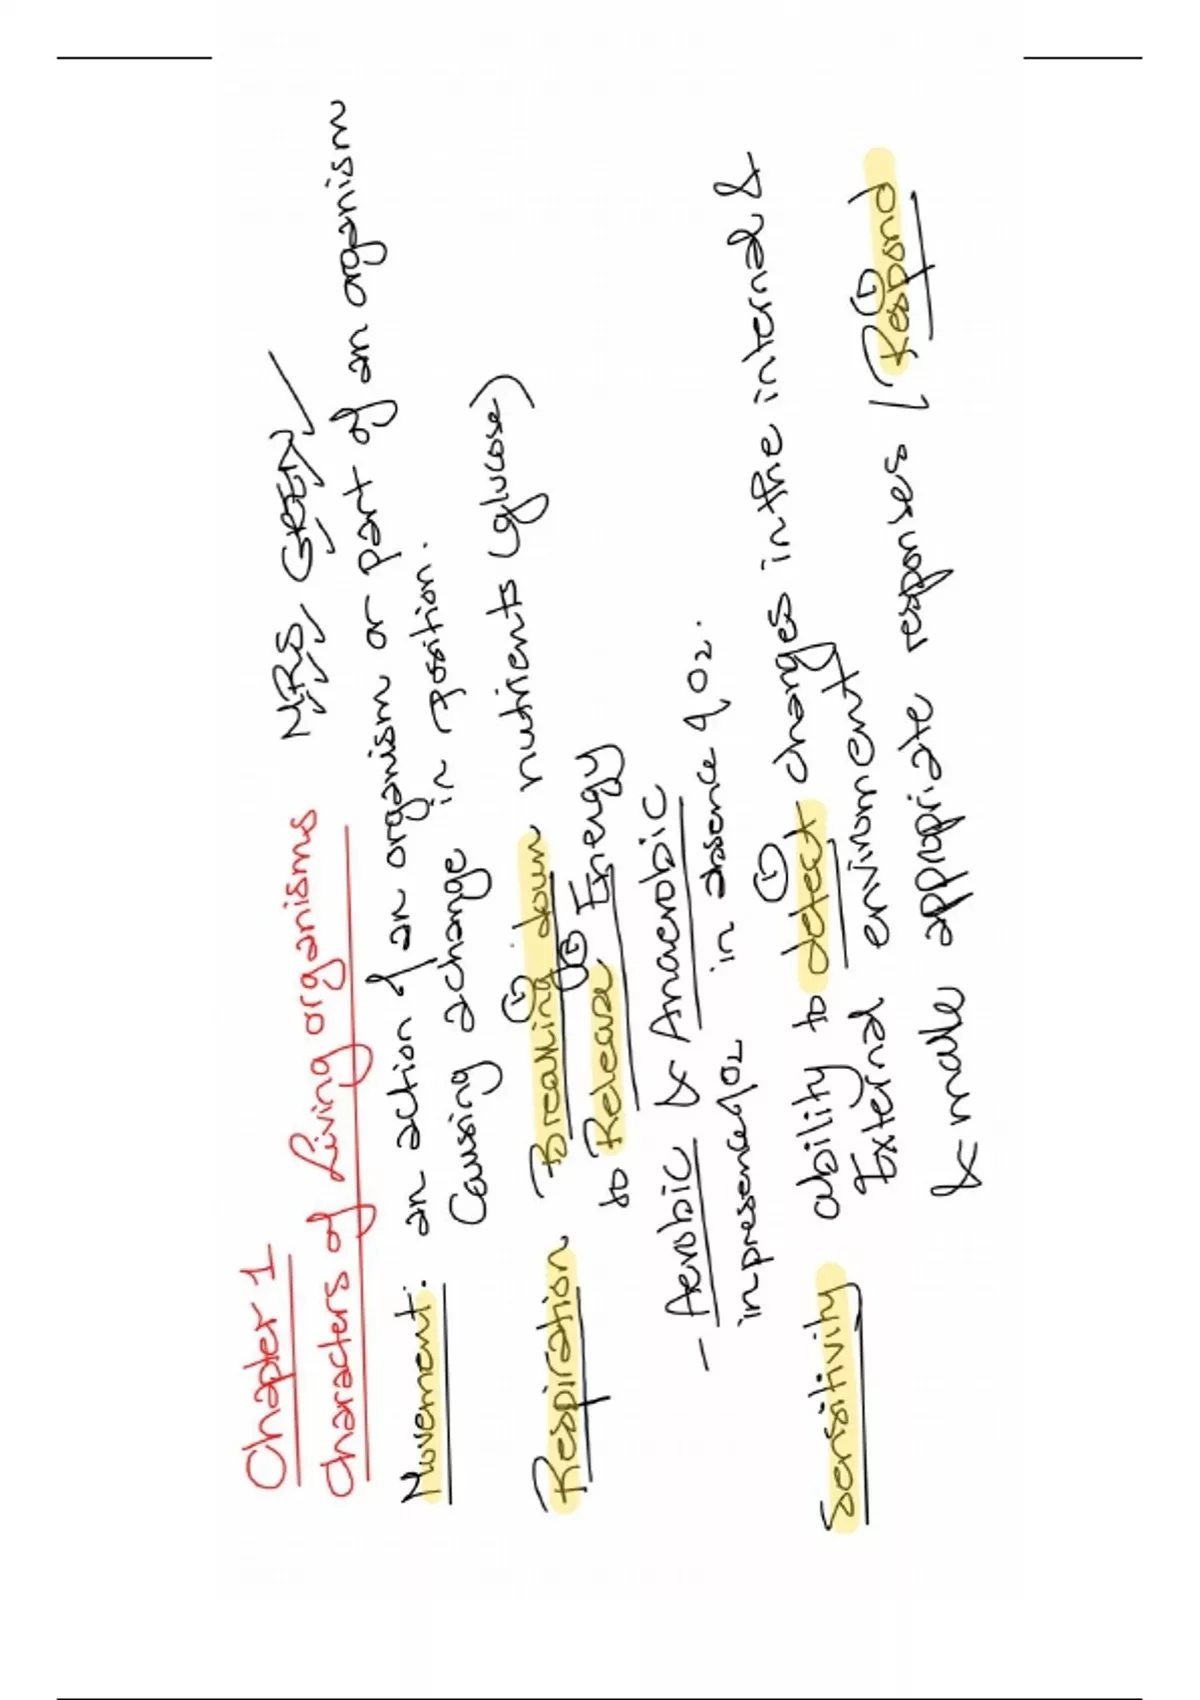 Chapter 1
Characters of Living organisms MRS GREN
Movement: an action of an organism or part of an organism
Causing a change in position.
Respiration Breaking down nutrients (glucose)
to Release Energy
- Aerobic & Anaerobic
in presence of O2 in absence of O2.
Sensitivity ability to detect changes in the internal &
External environment
& make appropriate responses / Respond